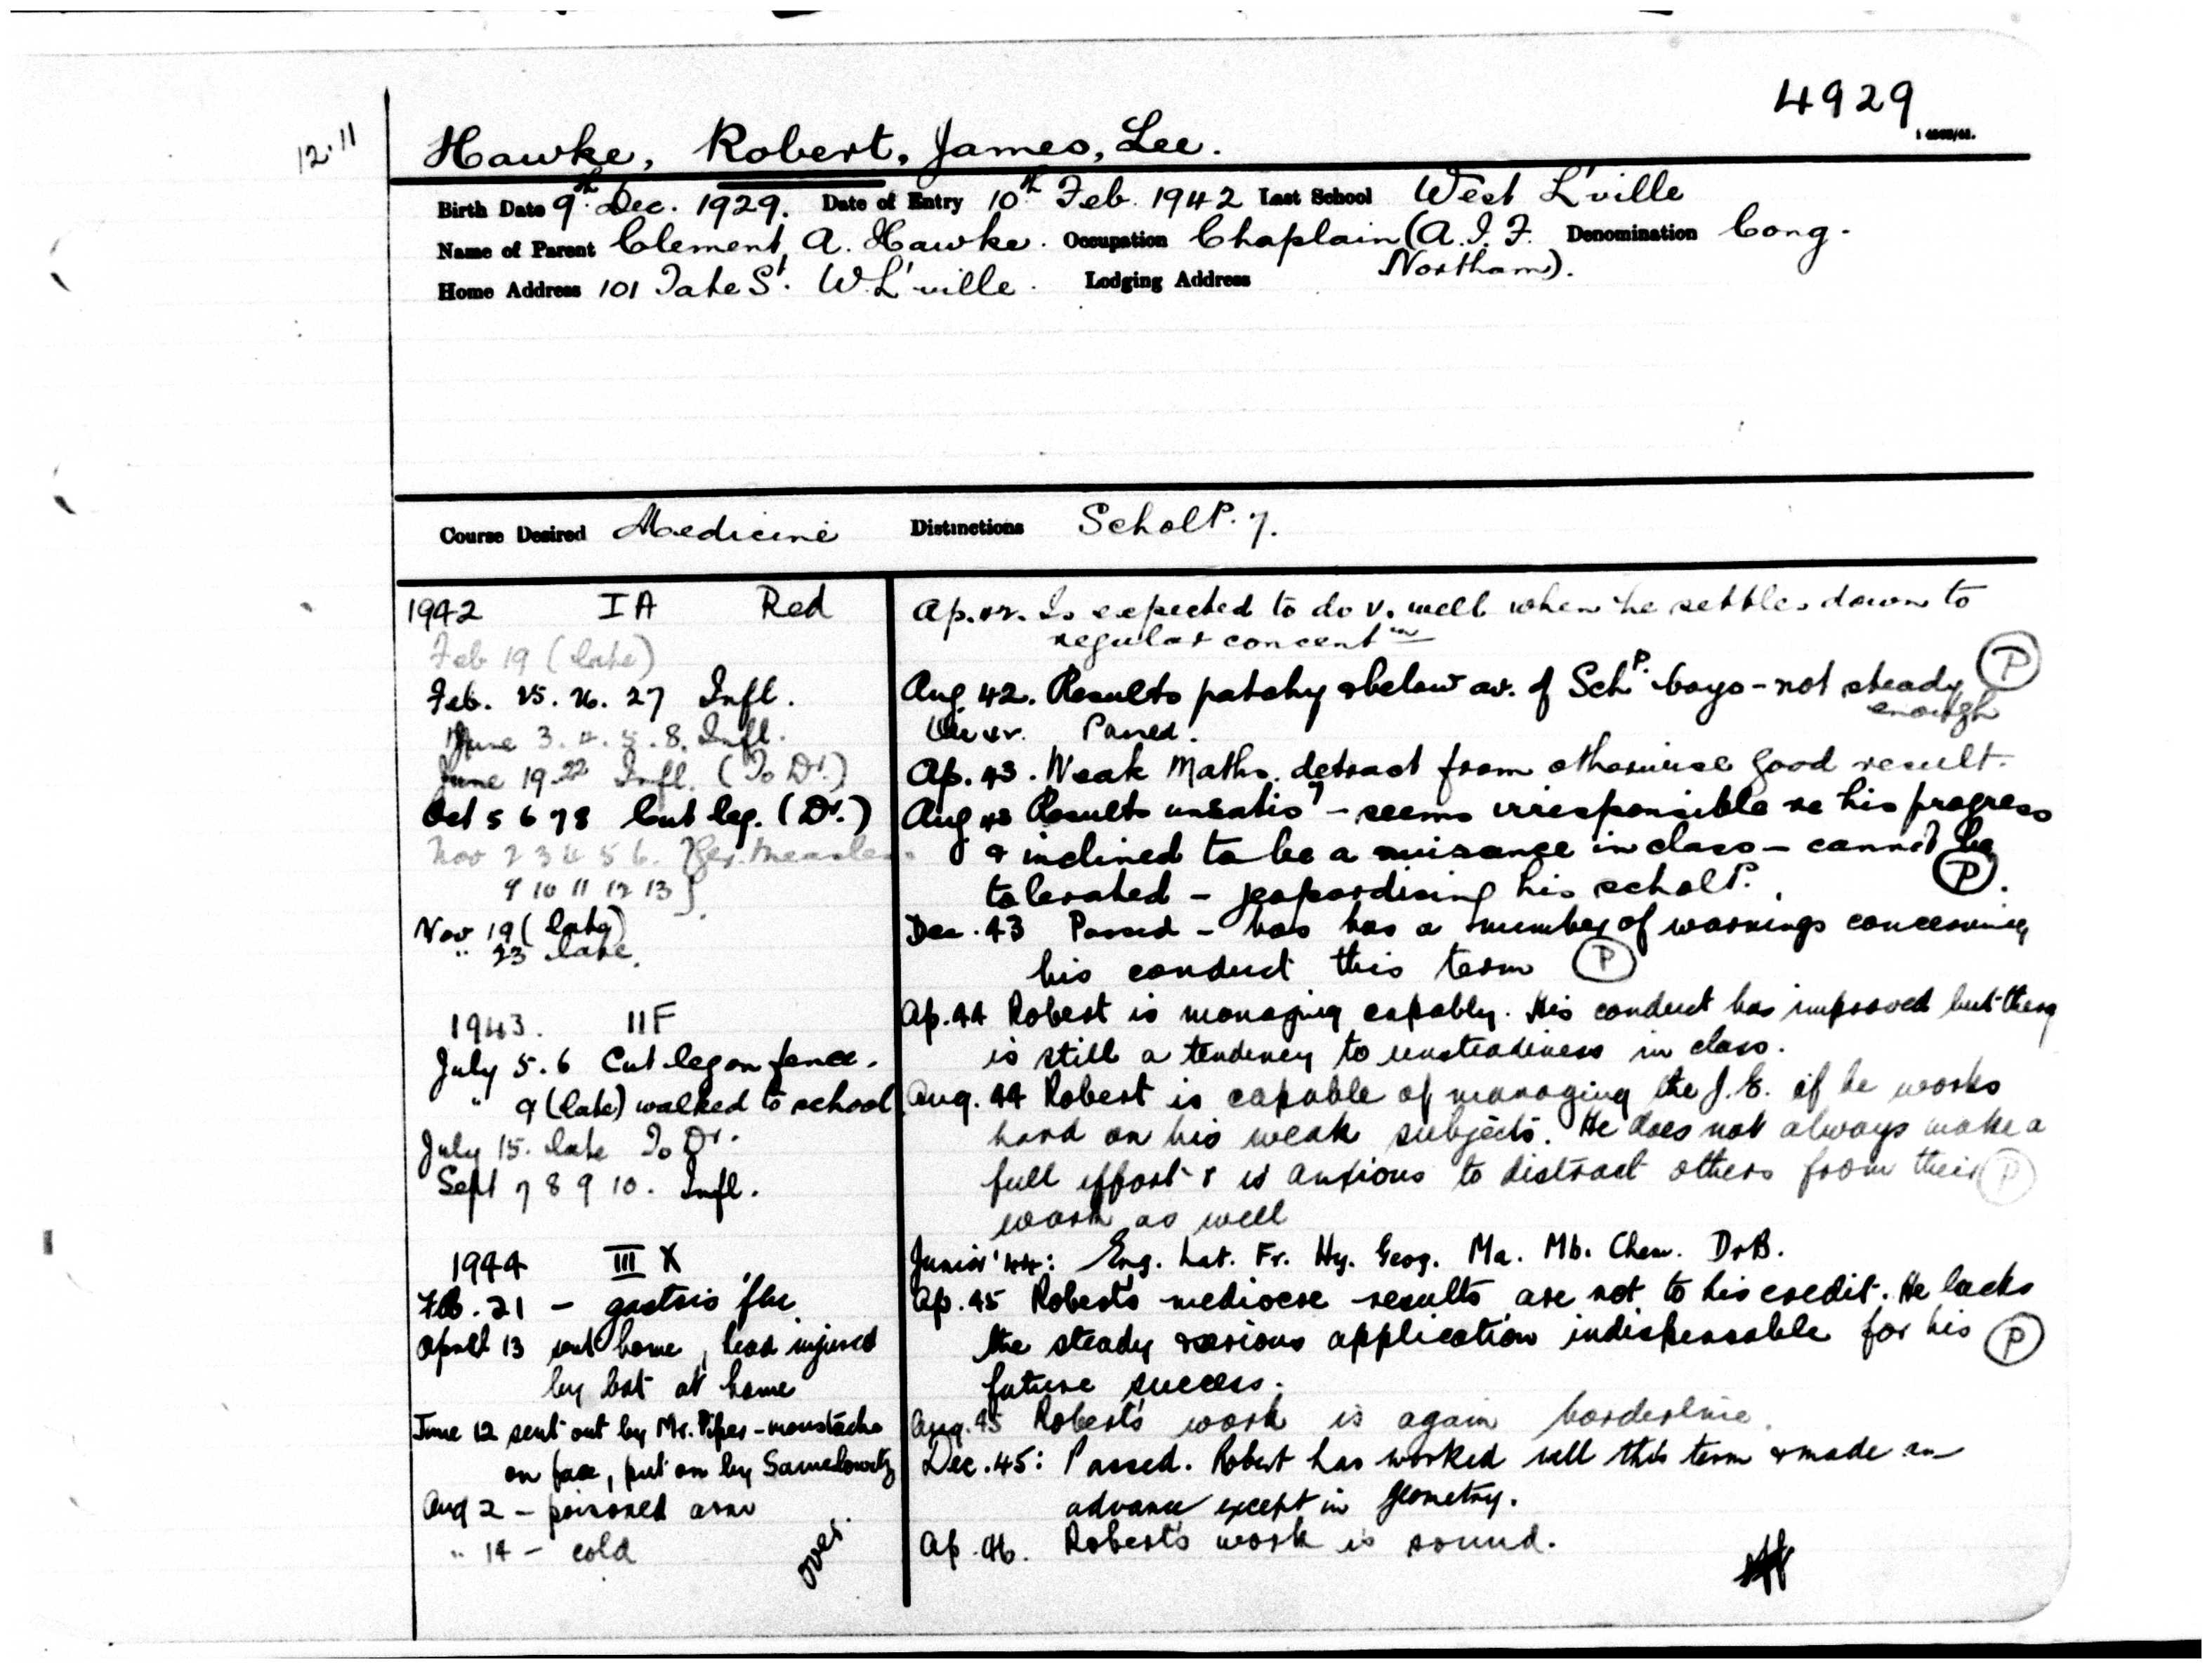 4929
12.11
Hawke, Robert, James, Lee.
Birth Date 9th Dec. 1929. Date of Entry 10th Feb. 1942 Last School West L'ville
Name of Parent Clement A. Hawke. Occupation Chaplain (A.I.F. Northam). Denomination Cong.
Home Address 101 Tate St. W. L'ville. Lodging Address
Course Desired Medicine Distinctions Scholp. 7.
1942 IA Red
Feb 19 (late)
Feb. 25. 26. 27 Infl.
June 3. 4. 5. 8. Infl.
June 19-22 Infl. (To Dr.)
Oct 5 6 7 8 Cut leg. (Dr.)
Nov 2 3 4 5 6. Ger. Measles
9 10 11 12 13 }
Nov 19 (late)
" 23 late.
1943. IIF
July 5. 6 Cut leg on fence.
" 9 (late) walked to school
July 15. late To Dr.
Sept 7 8 9 10. Infl.
1944 III X
Feb. 21 - gastric flu
April 13 sent home, head injured
by bat at home
June 12 sent out by Mr. Piper - moustache
on face, put on by
Aug 2 - poisoned arm
" 14 - cold
over.
Ap. 42. Is expected to do v. well when he settles down to
regular concentn
Aug 42. Results patchy & below av. of Schp. boys - not steady enough (P)
Dec 42. Passed.
Ap. 43. Weak Maths. detract from otherwise good result.
Aug 43 Results unsatisy - seems irresponsible re his progress
& inclined to be a nuisance in class - cannot be
tolerated - jeopardising his scholp. (P).
Dec. 43 Passed - has has a number of warnings concerning
his conduct this term (P)
Ap. 44 Robert is managing capably. His conduct has improved but there
is still a tendency to unsteadiness in class.
Aug. 44 Robert is capable of managing the J.E. if he works
hard on his weak subjects. He does not always make a
full effort & is anxious to distract others from their (P)
work as well
Junior '44: Eng. Lat. Fr. Hy. Geog. Ma. Mb. Chem. DrB.
Ap. 45 Robert's mediocre results are not to his credit. He lacks
the steady serious application indispensable for his (P)
future success.
Aug. 45 Robert's work is again borderline.
Dec. 45: Passed. Robert has worked well this term & made an
advance except in geometry.
Ap. 46. Robert's work is sound.